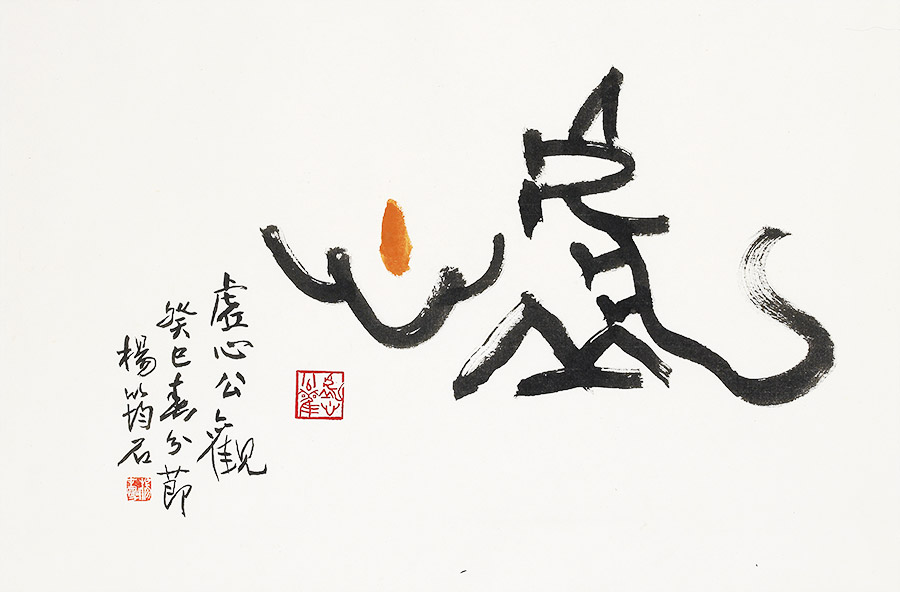 虛心
虛心公觀
癸巳春分節
楊筠石